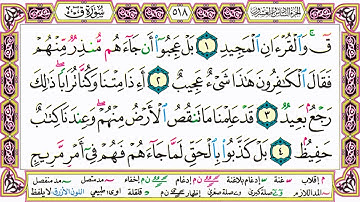 سورة ق
٥١٨
قٓ ۚ وَٱلْقُرْءَانِ ٱلْمَجِيدِ ١ بَلْ عَجِبُوٓا۟ أَن جَآءَهُم مُّنذِرٌ مِّنْهُمْ
فَقَالَ ٱلْكَٰفِرُونَ هَٰذَا شَىْءٌ عَجِيبٌ ٢ أَءِذَا مِتْنَا وَكُنَّا تُرَابًا ۖ ذَٰلِكَ
رَجْعٌۢ بَعِيدٌ ٣ قَدْ عَلِمْنَا مَا تَنقُصُ ٱلْأَرْضُ مِنْهُمْ ۖ وَعِندَنَا كِتَٰبٌ
حَفِيظٌۢ ٤ بَلْ كَذَّبُوا۟ بِٱلْحَقِّ لَمَّا جَآءَهُمْ فَهُمْ فِىٓ أَمْرٍ مَّرِيجٍ